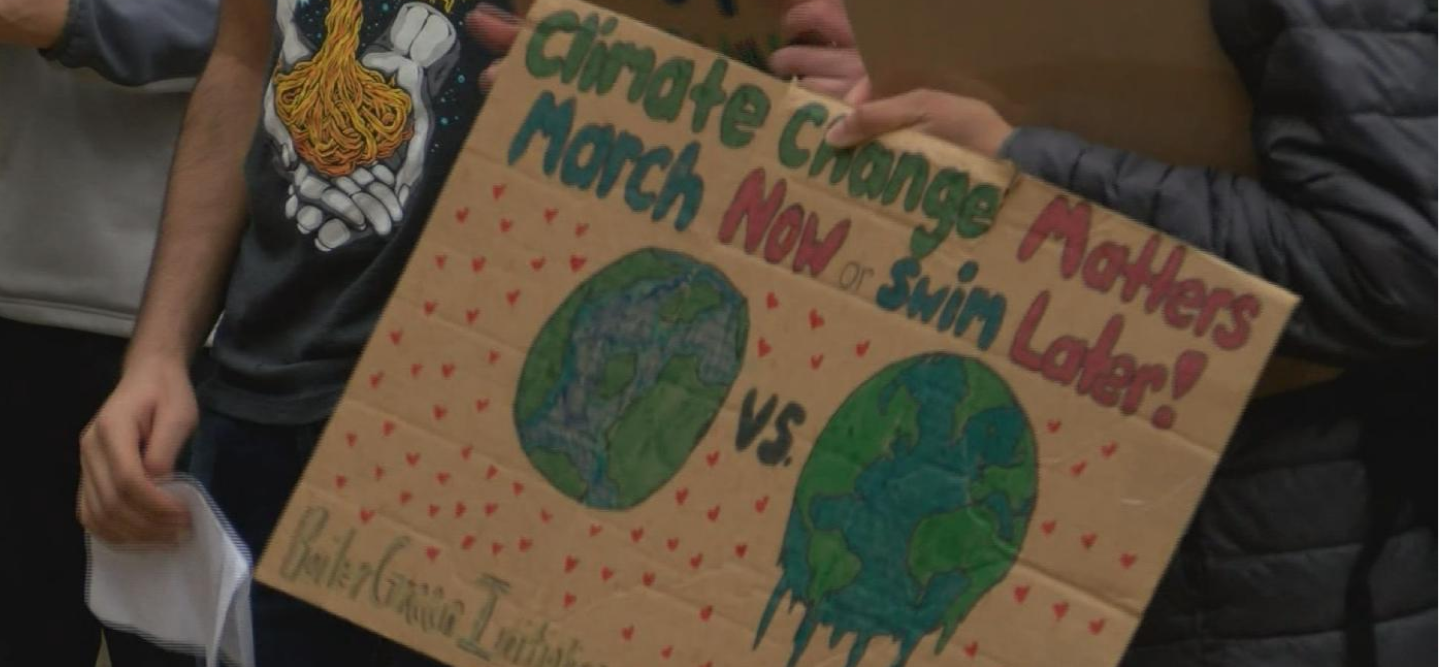 Climate Change Matters
March Now or Swim Later!
vs.
Boiler Green Initiative